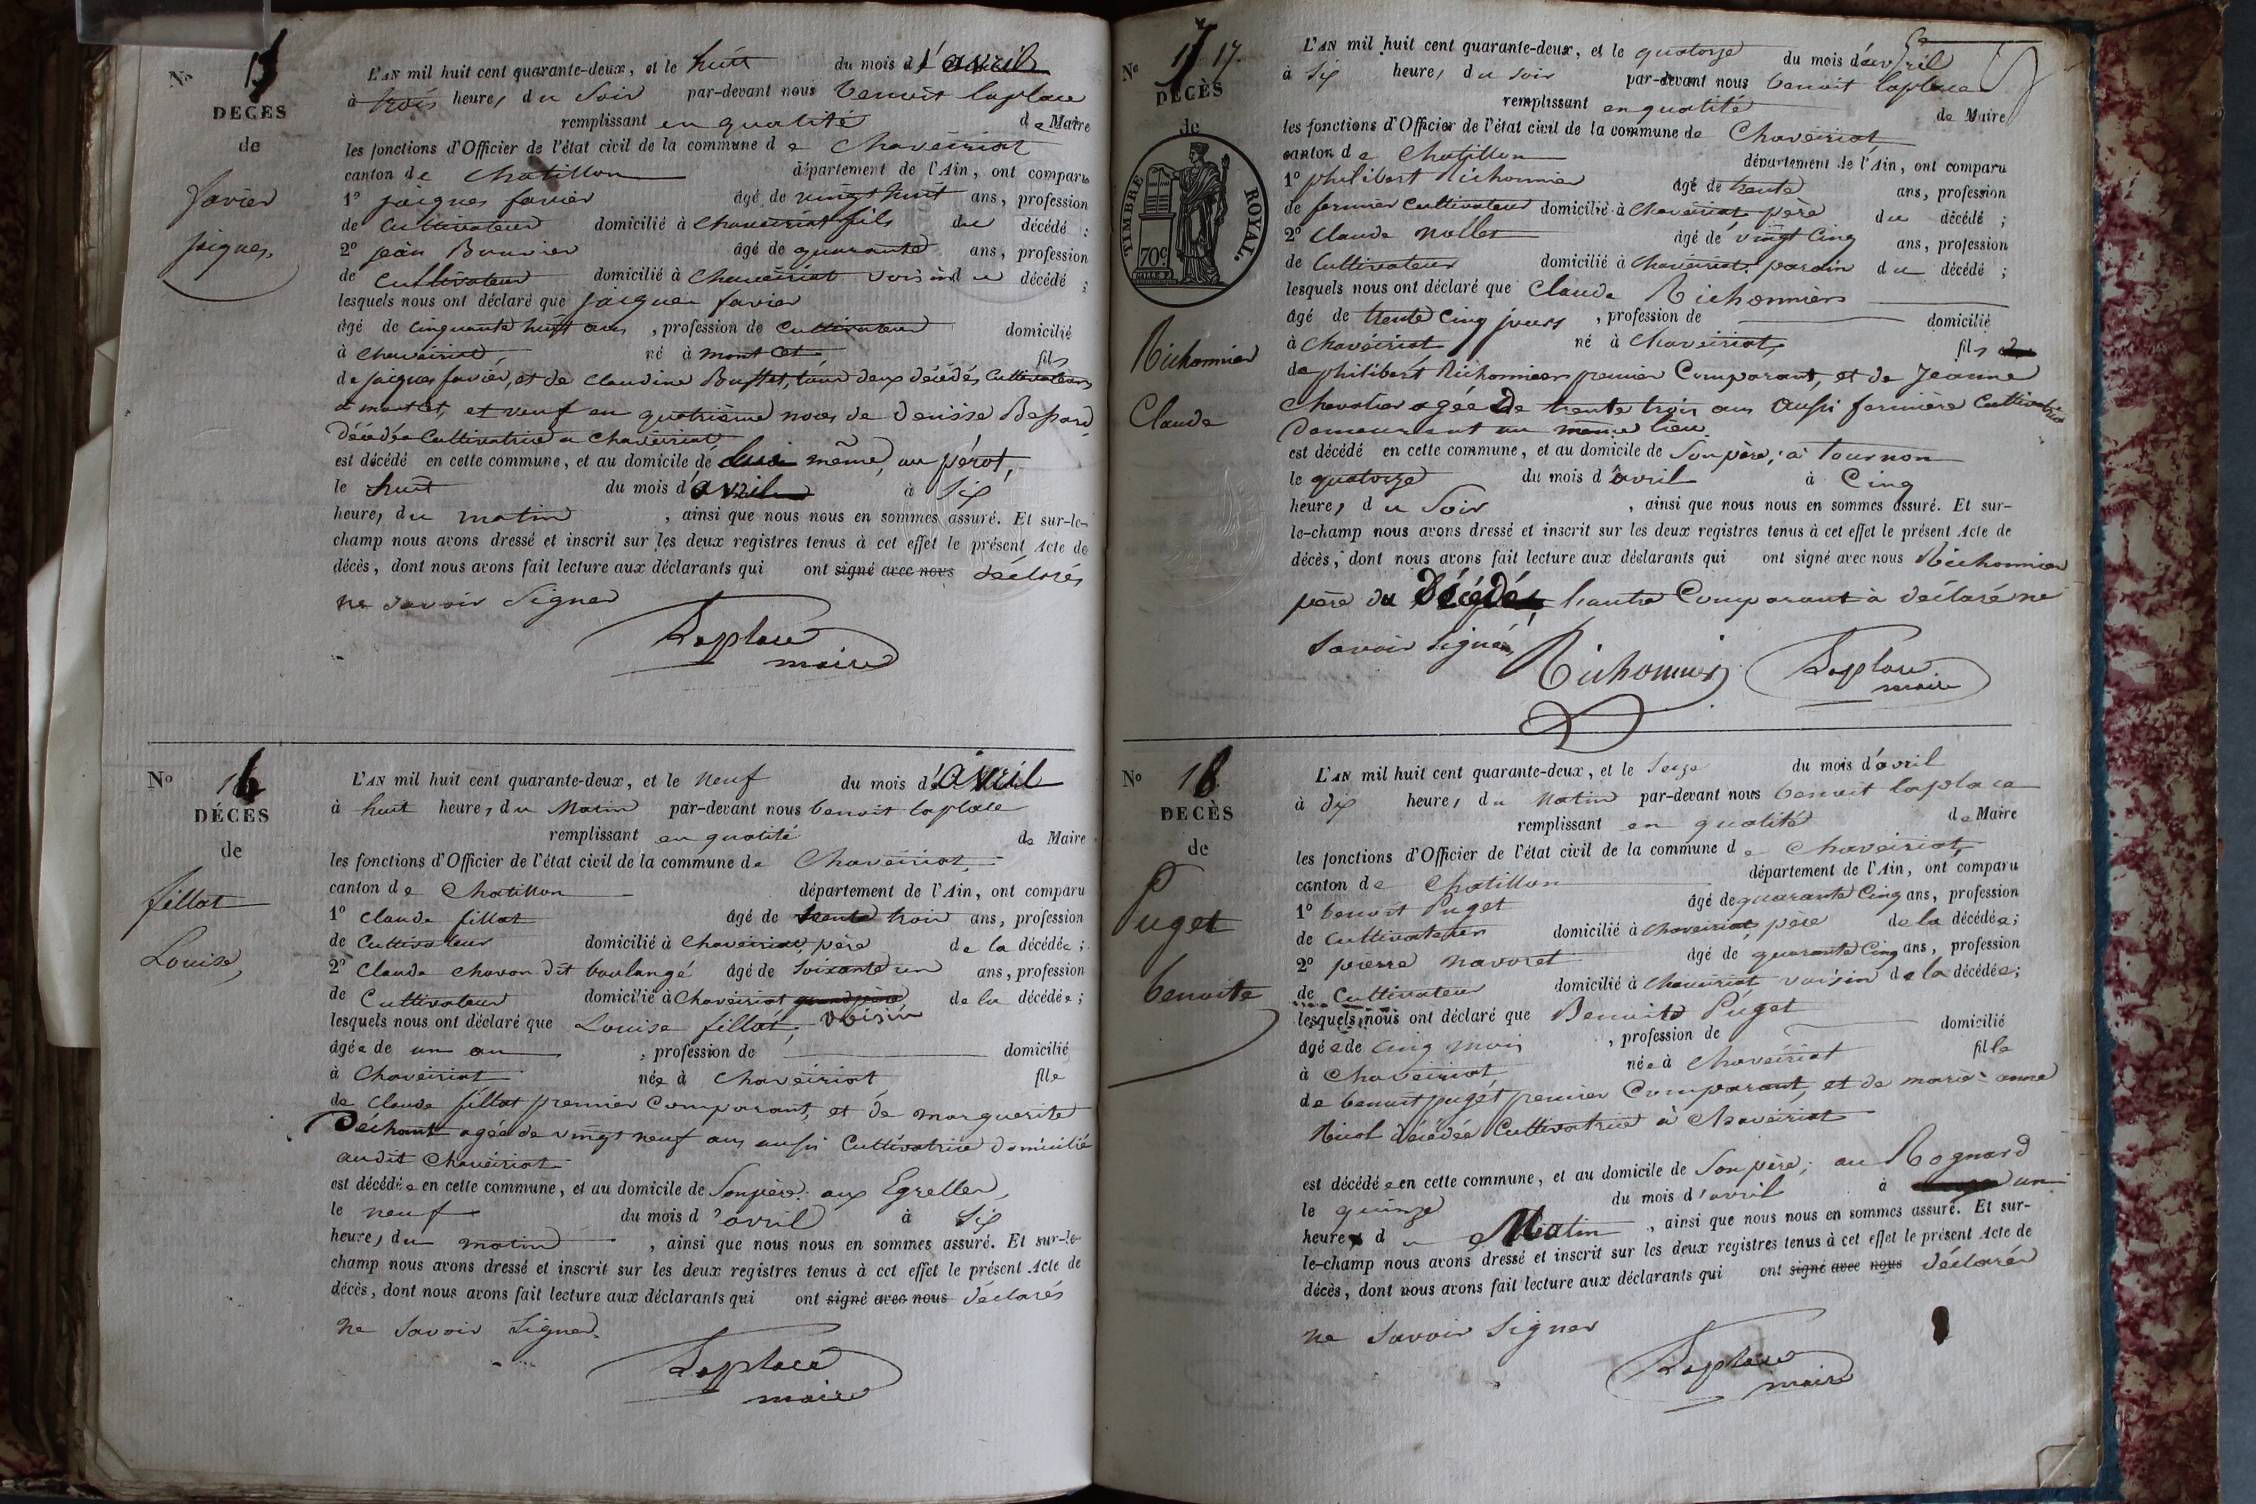 N° 15
DÉCÈS
de
favier
jaiques
L'AN mil huit cent quarante-deux, et le huit du mois d'avril
à trois heures du Soir par-devant nous benoit laplace
remplissant en qualité de Maire
les fonctions d'Officier de l'état civil de la commune de Chaveiriat
canton de Chatillon département de l'Ain, ont comparu
1° jaiques favier âgé de vingt huit ans, profession
de Cultivateur domicilié à Chaveiriat fils du décédé ;
2° jean Bouvier âgé de quarante ans, profession
de Cultivateur domicilié à Chaveiriat voisin du décédé ;
lesquels nous ont déclaré que jacques favier
âgé de cinquante huit ans, profession de Cultivateur domicilié
à Chaveiriat, né à montcet fils
de jaiques favier, et de Claudine Buffet, leur deux décédés Cultivateurs
a montcet, et veuf en quatrième noces de denise
décédée Cultivatrice a Chaveiriat
est décédé en cette commune, et au domicile de lui même, au pérot,
le huit du mois d'avril à six
heures du matin, ainsi que nous nous en sommes assuré. Et sur-le-
champ nous avons dressé et inscrit sur les deux registres tenus à cet effet le présent Acte de
décès, dont nous avons fait lecture aux déclarants qui ont signé avec nous déclarés
ne savoir Signer
Laplace
maire
N° 16
DÉCÈS
de
fillot
Louise
L'AN mil huit cent quarante-deux, et le neuf du mois d'avril
à huit heures du Matin par-devant nous benoit laplace
remplissant en qualité de Maire
les fonctions d'Officier de l'état civil de la commune de Chaveiriat
canton de Chatillon département de l'Ain, ont comparu
1° Claude fillot âgé de trente trois ans, profession
de Cultivateur domicilié à Chaveiriat, père de la décédée ;
2° Claude chavon dit boulangé âgé de soixante un ans, profession
de Cultivateur domicilié à Chaveiriat grand père de la décédée ;
lesquels nous ont déclaré que Louise fillot, voisin
âgée de un an, profession de domicilié
à Chaveiriat née à Chaveiriat fille
de Claude fillot premier Comparant, et de marguerite
Déchant agée de vingt neuf ans aussi Cultivatrice domicilié
audit Chaveiriat
est décédée en cette commune, et au domicile de Son père, aux Egrelles,
le neuf du mois d'avril à six
heures du matin, ainsi que nous nous en sommes assuré. Et sur-le-
champ nous avons dressé et inscrit sur les deux registres tenus à cet effet le présent Acte de
décès, dont nous avons fait lecture aux déclarants qui ont signé avec nous déclarés
ne Savoir Signer
Laplace
maire
N° 17 17.
DÉCÈS
de
TIMBRE ROYAL
70c.
Richonnier
Claude
L'AN mil huit cent quarante-deux, et le quatorze du mois d'avril
à six heures du soir par-devant nous benoit laplace
remplissant en qualité de Maire
les fonctions d'Officier de l'état civil de la commune de Chaveiriat
canton de Chatillon département de l'Ain, ont comparu
1° philibert Richonnier âgé de trente ans, profession
de fermier Cultivateur domicilié à Chaveiriat père du décédé ;
2° Claude nallet âgé de vingt Cinq ans, profession
de Cultivateur domicilié à Chaveiriat parain du décédé ;
lesquels nous ont déclaré que Claude Richonniers
âgé de trente Cinq jours, profession de domicilié
à Chaveiriat né à Chaveiriat, fils
de philibert Richonniers premier Comparant, et de Jeanne
Chevalier agée de trente trois ans aussi fermière Cultivatrice
Demeurant au même lieu
est décédé en cette commune, et au domicile de Son père, a Tournon
le quatorze du mois d'avril à Cinq
heures du Soir, ainsi que nous nous en sommes assuré. Et sur-
le-champ nous avons dressé et inscrit sur les deux registres tenus à cet effet le présent Acte de
décès, dont nous avons fait lecture aux déclarants qui ont signé avec nous Richonnier
père du Décédé, l'autre Comparant à déclaré ne
Savoir Signer
Richonnier Laplace
maire
N° 18
DÉCÈS
de
Puget
benoite
L'AN mil huit cent quarante-deux, et le Seize du mois d'avril
à dix heures du Matin par-devant nous benoit laplace
remplissant en qualité de Maire
les fonctions d'Officier de l'état civil de la commune de Chaveiriat,
canton de Chatillon département de l'Ain, ont comparu
1° benoit Puget âgé de quarante Cinq ans, profession
de Cultivateur domicilié à Chaveiriat père de la décédée ;
2° pierre navoret âgé de quarante Cinq ans, profession
de Cultivateur domicilié à Chaveiriat voisin de la décédée ;
lesquels nous ont déclaré que Benoite Puget
âgée de cinq mois, profession de domicilié
à Chaveiriat née à Chaveiriat fille
de benoit puget premier Comparant, et de marie-anne
décédée Cultivatrice à Chaveiriat
est décédée en cette commune, et au domicile de Son père, au Rognard
le quinze du mois d'avril à un
heure du Matin, ainsi que nous nous en sommes assuré. Et sur-
le-champ nous avons dressé et inscrit sur les deux registres tenus à cet effet le présent Acte de
décès, dont nous avons fait lecture aux déclarants qui ont signé avec nous déclarés
ne Savoir Signer
Laplace
maire